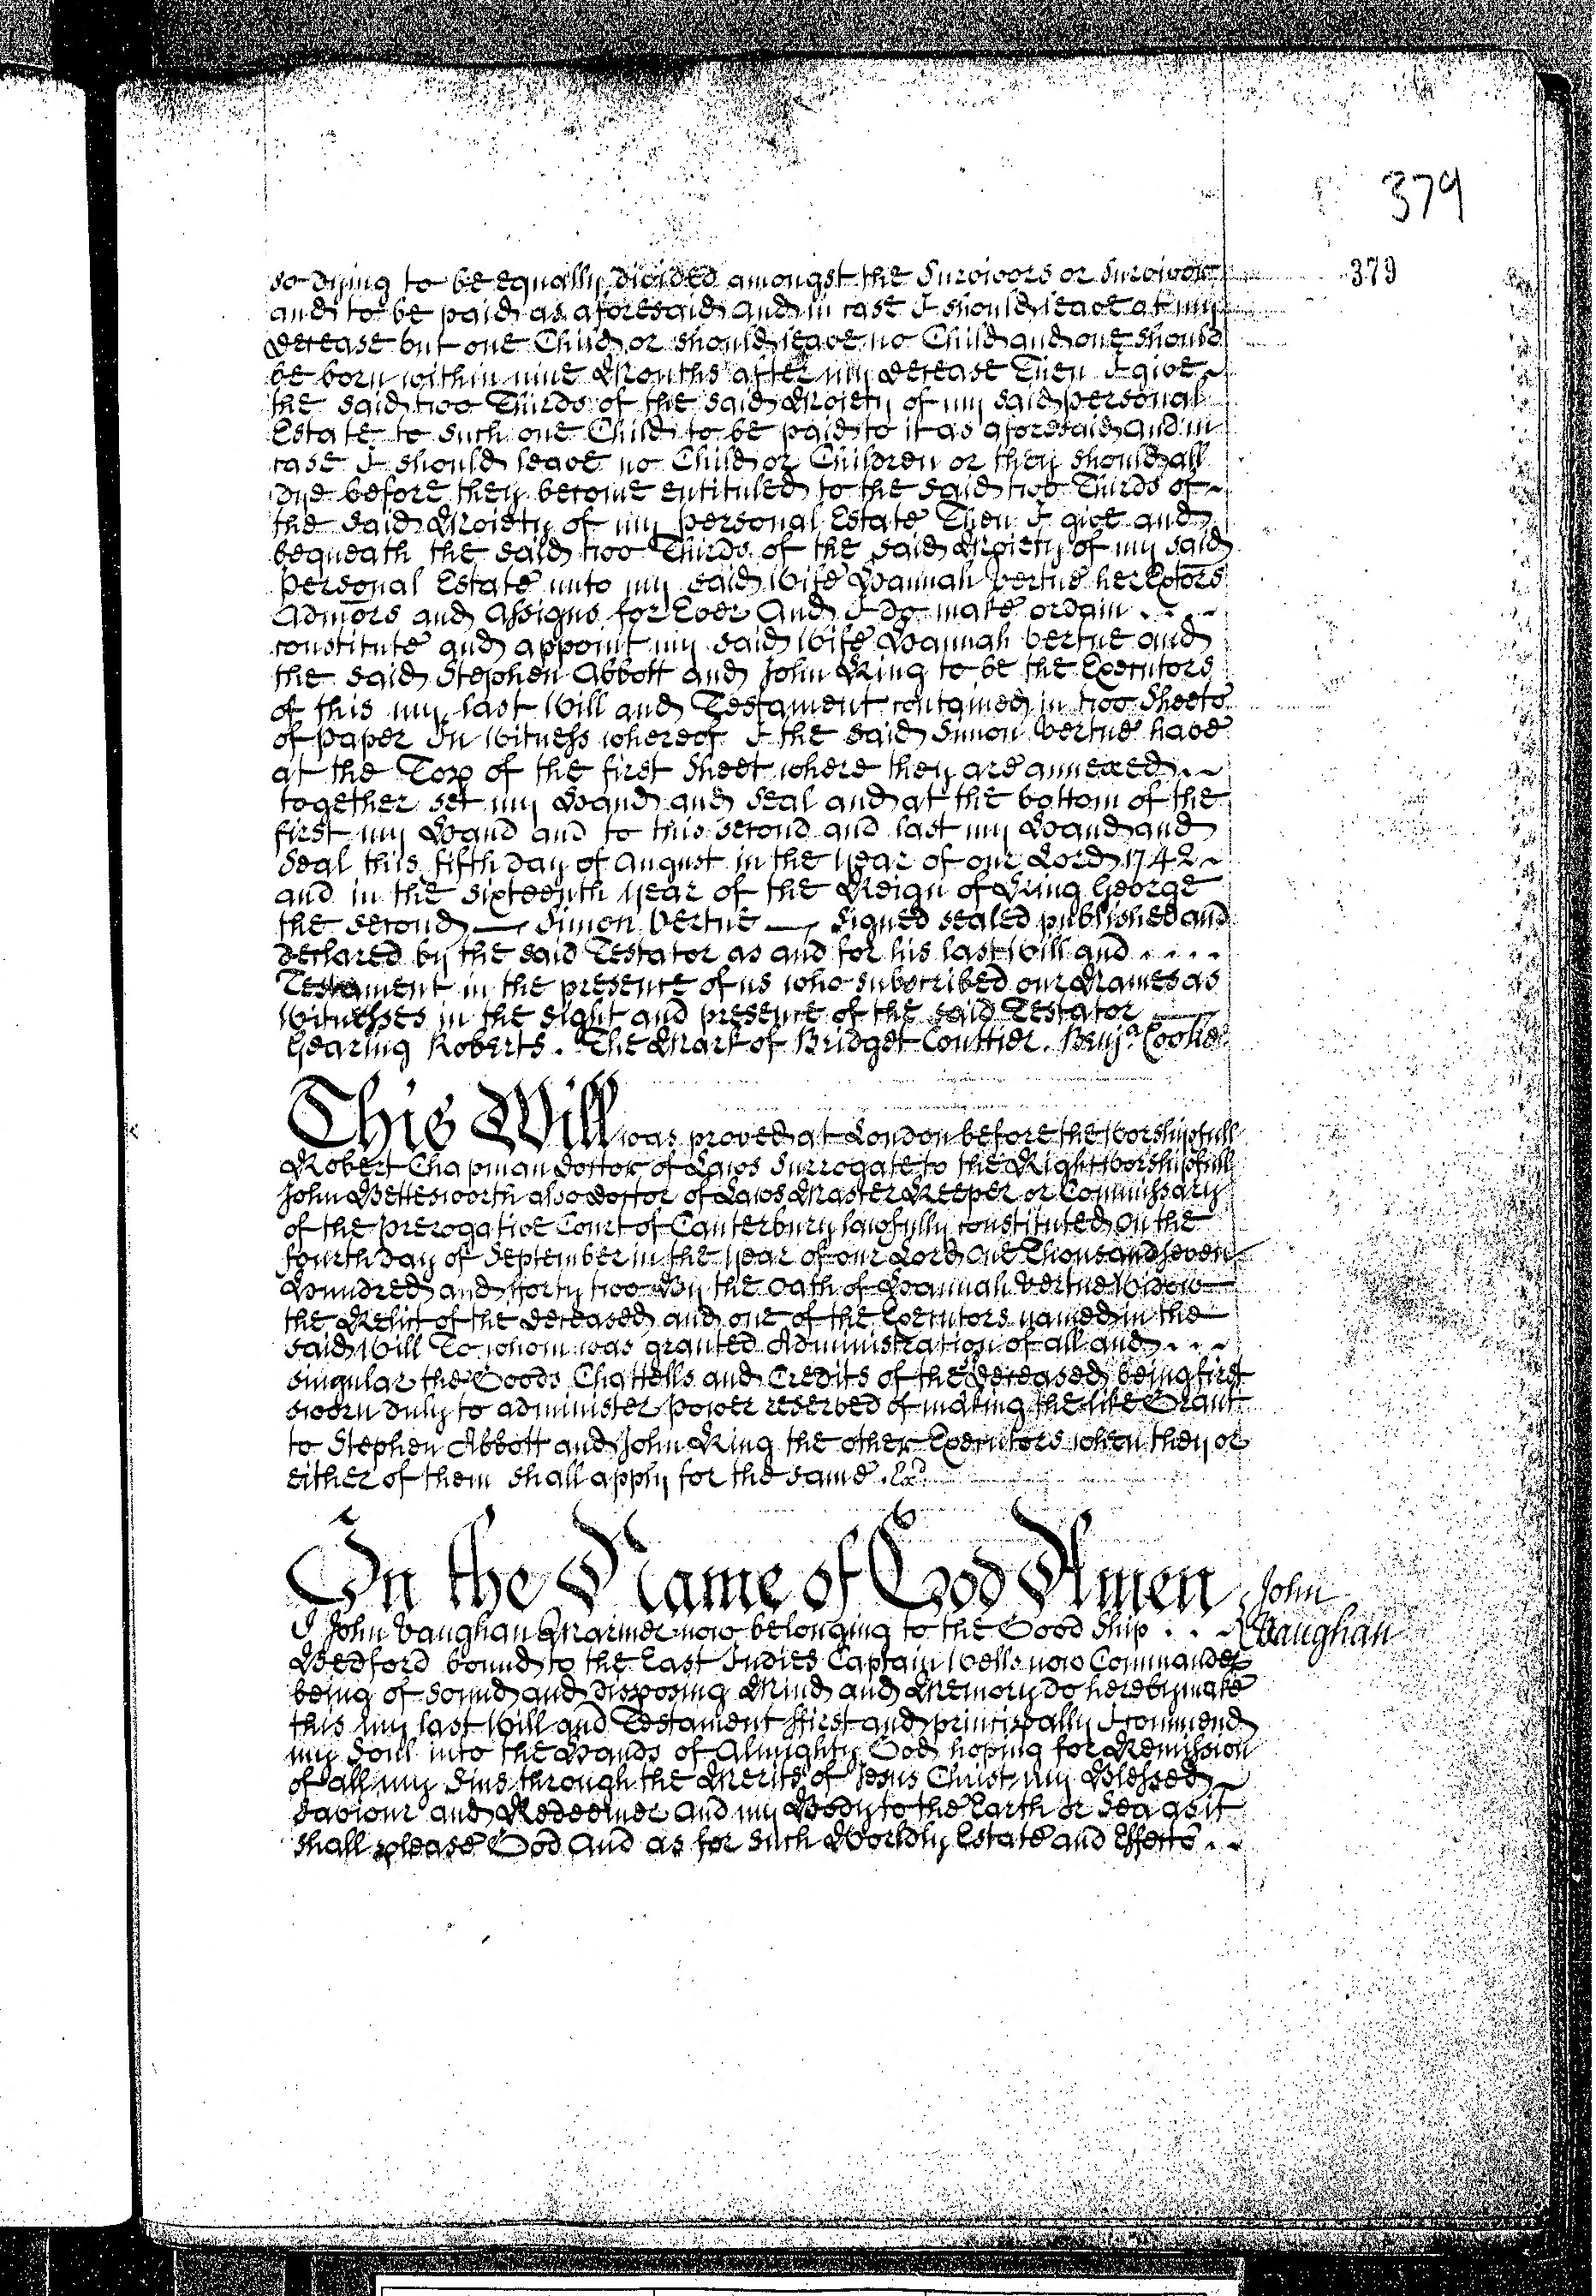 379
379
so dying to be equally divided amongst the Survivors or Survivor
and to be paid as aforesaid and in case I should leave at my
decease but one Child or should leave no Child and one should
be born within nine Months after my decease Then I give
the said two Thirds of the said Moiety of my said personal
Estate to such one Child to be paid to it as aforesaid and in
case I should leave no Child or Children or they should all
dye before they become entituled to the said two Thirds of
the said Moiety of my personal Estate Then I give and
bequeath the said two Thirds of the said Moiety of my said
personal Estate unto my said Wife Hannah Vertue her Exōrs
Admōrs and Assigns for Ever And I do make ordain . . .
constitute and appoint my said Wife Hannah Vertue and
the said Stephen Abbott and John King to be the Executors
of this my last Will and Testament contained in two Sheets
of Paper In Witness whereof I the said Simon Vertue have
at the Top of the first Sheet where they are annexed
together set my Hand and Seal and at the bottom of the
first my Hand and to this second and last my Hand and
Seal this fifth day of August in the year of our Lord 1742
and in the sixteenth year of the Reign of King George
the second — Simon Vertue — Signed sealed published and
declared by the said Testator as and for his last Will and . . . .
Testament in the presence of us who subscribed our Names as
Witnesses in the sight and presence of the said Testator —
Gearing Roberts . The Mark of Bridget Couttier . Benjª. Cooke
This Will was proved at London before the Worshipfull
Robert Chapman Doctor of Laws Surrogate to the Right Worshipfull
John Bettesworth also Doctor of Laws Master Keeper or Commissary
of the Prerogative Court of Canterbury lawfully constituted On the
fourth day of September in the year of our Lord One Thousand seven
Hundred and fforty two By the Oath of Hannah Vertue Widow
the Relict of the deceased and one of the Executors named in the
said Will To whom was granted Administration of all and . . .
singular the Goods Chattells and Credits of the deceased being first
sworn duly to administer Power reserved of making the like Grant
to Stephen Abbott and John King the other Executors when they or
either of them shall apply for the same . Exd
In the Name of God Amen
John
Vaughan
I John Vaughan Mariner now belonging to the Good Ship . . .
Bedford bound to the East Indies Captain Wells now Commander
being of sound and disposing Mind and Memory do hereby make
this my last Will and Testament ffirst and principally I commend
my Soul into the Hands of Almighty God hoping for Remission
of all my Sins through the Merits of Jesus Christ my Blessed
Saviour and Redeemer and my Body to the Earth or Sea as it
shall please God And as for such Worldly Estate and Effects . .